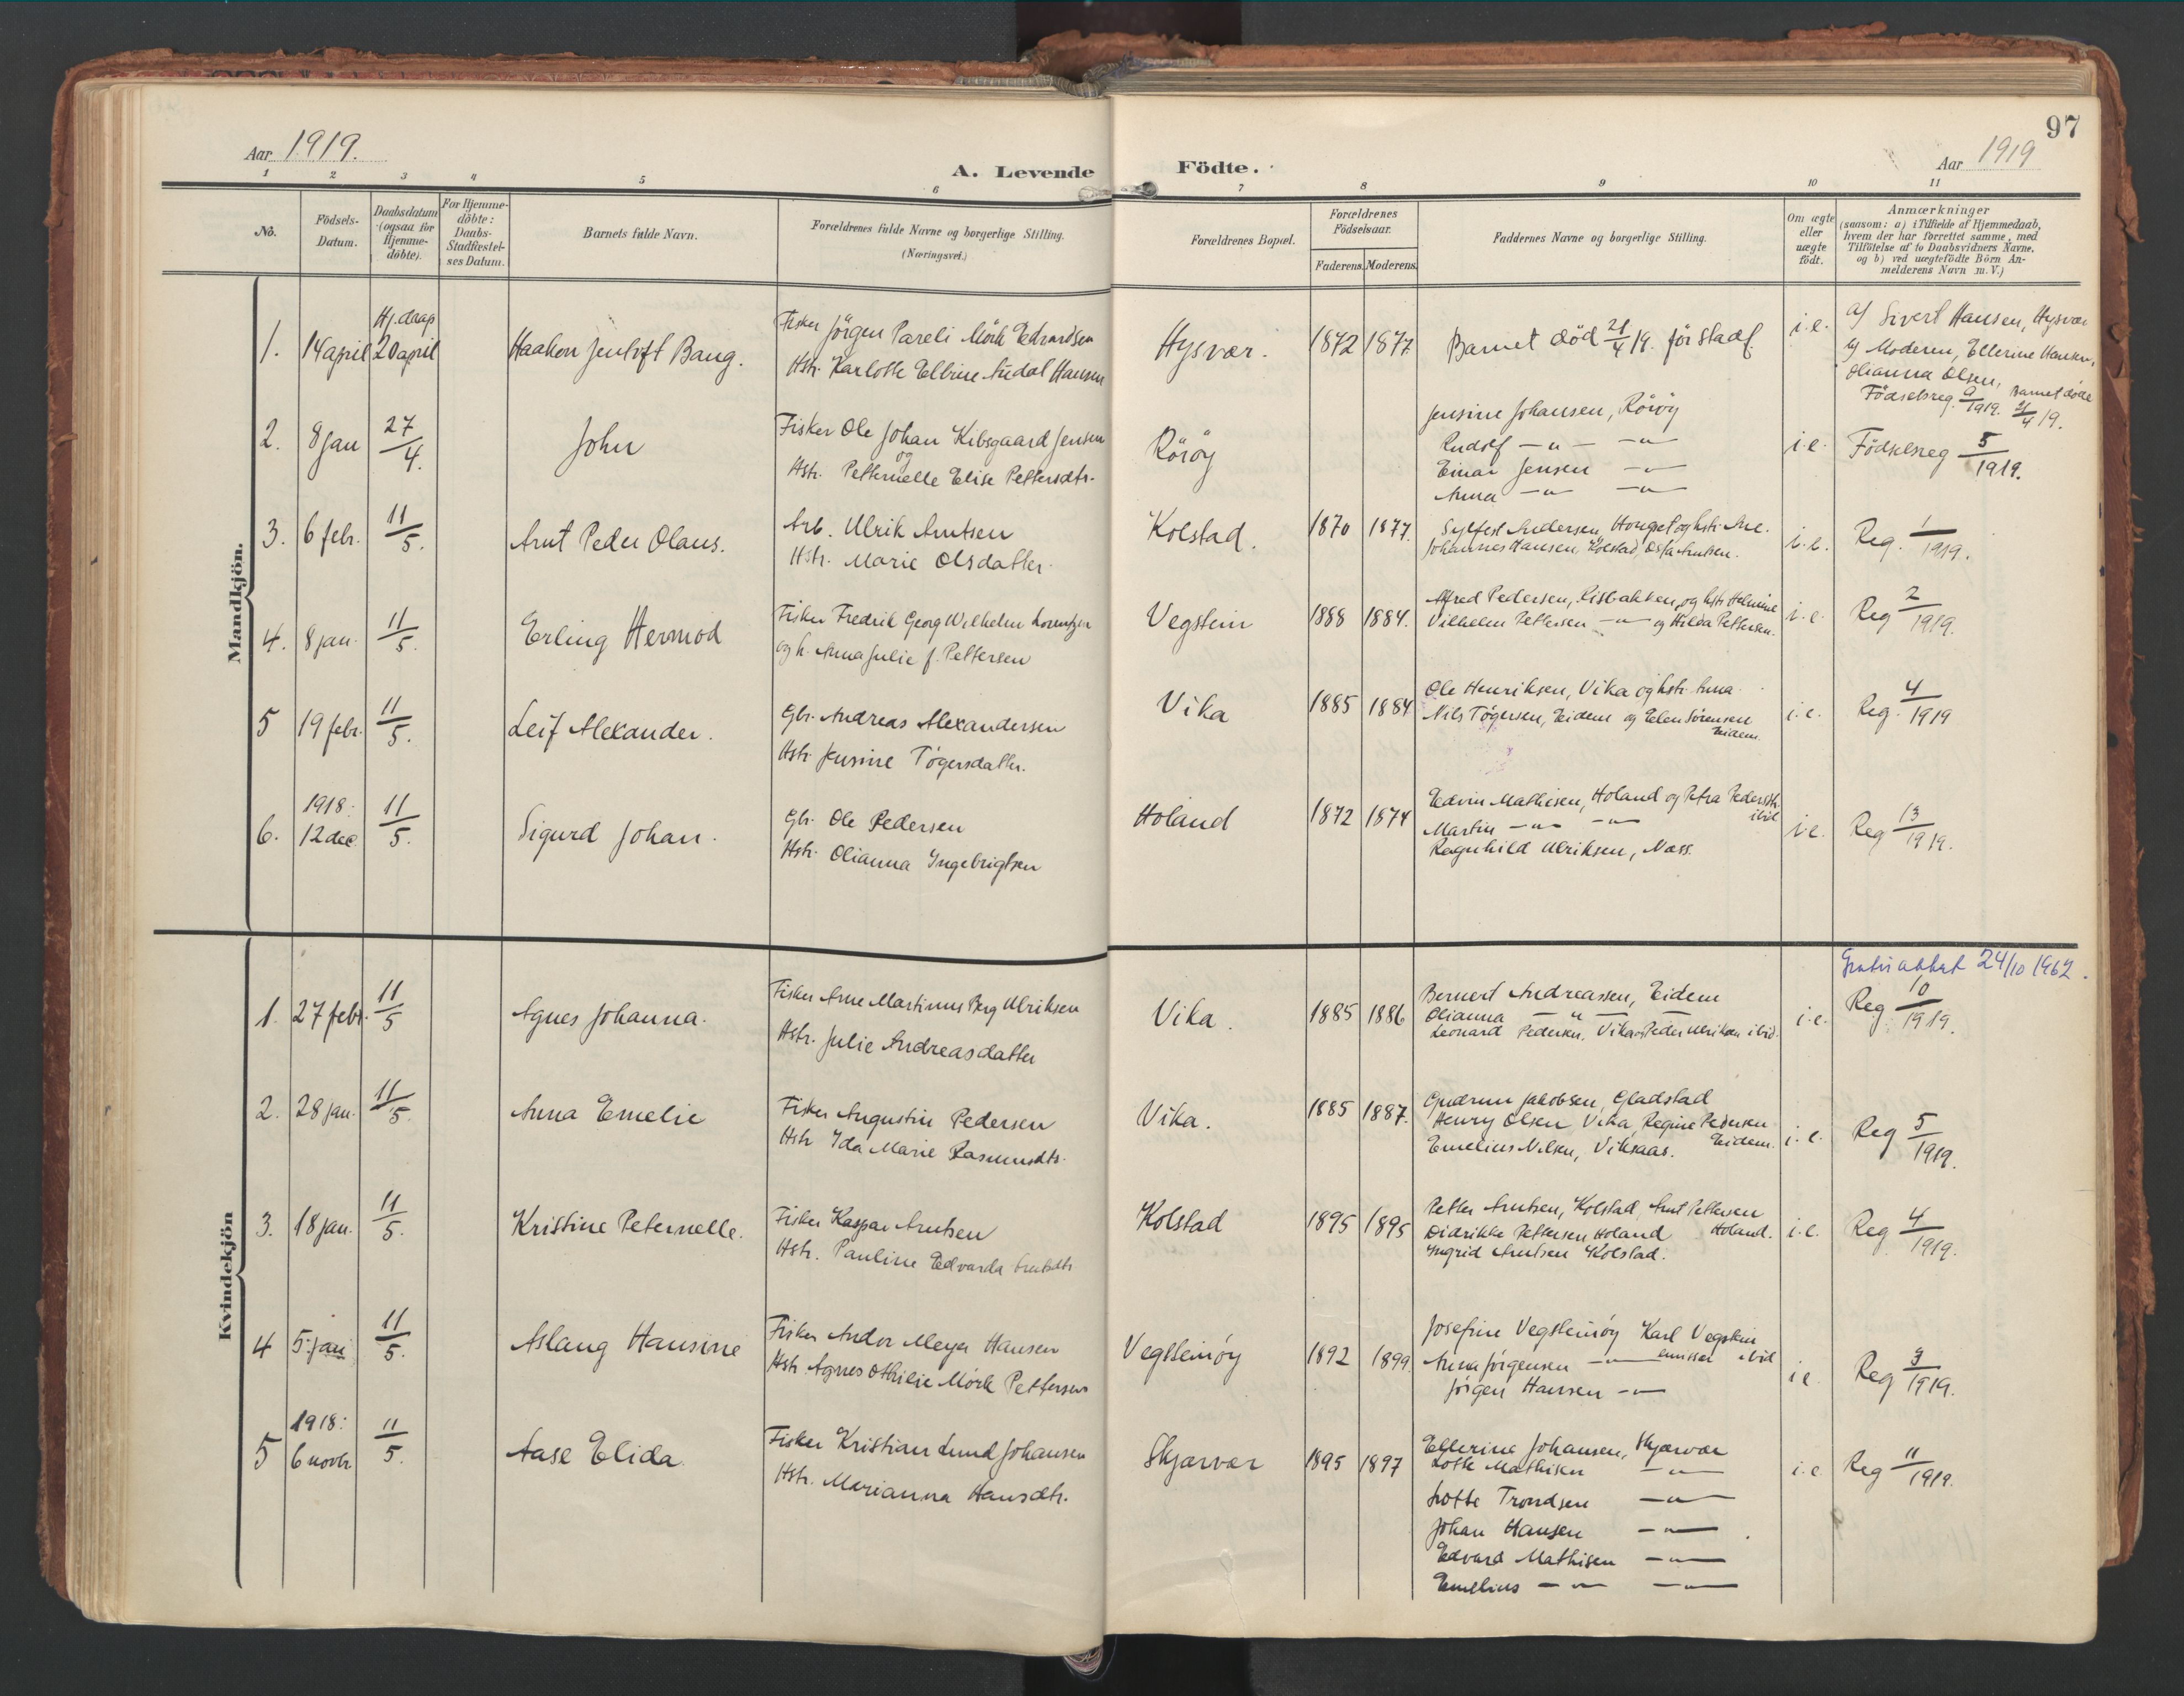 97
Aar 1919.
A. Levende Födte.
Aar 1919
1 2 3 4 5 6 7 8 9 10 11
No.
Födsels-
Datum.
Daabsdatum
(ogsaa for
Hjemme-
döbte).
For Hjemme-
döbte:
Daabs-
Stadfæstel-
ses Datum.
Barnets fulde Navn.
Forældrenes fulde Navne og borgerlige Stilling.
(Næringsvei.)
Forældrenes Bopæl.
Forældrenes
Födselsaar.
Faderens. Moderens.
Faddernes Navne og borgerlige Stilling.
Om ægte
eller
uægte
födt.
Anmærkninger
(saasom: a) i Tilfælde af Hjemmedaab,
hvem der har forrettet samme, med
Tilföielse af to Daabsvidners Navne,
og b) ved uægtefödte Börn An-
melderens Navn m. V.)
Mandkjön.
1. 14 april Hj.daap 20 april Haakon Jentoft Bang.
Fisker Jörgen Pareli Mörk Edvardsen
Hstr. Karlotte Elbine Hansen
Hysvær. 1872 1877 Barnet död 21/4 19. för stadf. i.e.
a/ Sivert Hansen, Hysvær
b/ Moderen, Ellerine Hansen,
Olianna Olsen, Barnet döde
Födselsreg. 9/1919. 21/4 19.
2. 8 jan 27/4. John
Fisker Ole Johan Kibsgaard Jensen
og
Hstr. Petternelle Elise Pettersdtr.
Röröy
Jensine Johansen, Röröy
Rudolf —"— —"—
Einar Jensen —"—
Anna —"— —"—
i.e. Födselsreg 5/1919.
3. 6 febr. 11/5. Arnt Peder Olaus.
Arb. Ulrik Arntsen
Hstr. Marie Olsdatter.
Kolstad. 1870 1877.
Sylfest Andersen, Hongset og hstr. Ane.
Johannes Hansen, Kolstad, Arntsen.
i.e. Reg. 1/1919.
4. 8 jan. 11/5. Erling Hermod
Fisker Fredrik Georg Wilhelm Lorentzen
og h. Anna Julie f. Pettersen
Vegstein 1888 1884.
Alfred Pedersen, Risbakken, og hstr Helmine
Vilhelm Pettersen —"— og Hilda Pettersen.
i.e. Reg 2/1919.
5 19 febr. 11/5. Leif Alexander.
Gbr. Andreas Alexandersen
Hstr Jensine Tögersdatter.
Vika 1885 1884
Ole Henriksen, Vika og hstr. Anna
Nils Tögersen, Eidem og Elen Sörensen
Eidem.
i.e. Reg. 4/1919
6. 1918: 12 dec. 11/5. Sigurd Johan.
Gbr. Ole Pedersen
Hstr. Olianna Ingebrigtsen
Holand 1872 1874
Edvin Mathisen, Holand og Petra Pedersdtr.
ibid
Martin —"— —"—
Ragnhild Ulriksen, Nass.
i.e. Reg 13/1919.
Kvindekjön
Gratisattest 24/10 1962.
1. 27 febr. 11/5 Agnes Johanna.
Fisker Arne Martinus Berg Ulriksen
Hstr. Julie Andreasdatter
Vika. 1885 1886
Bernert Andreassen, Eidem
Olianna —"— —
Leonard Pedersen, Vika og Peder Ulriksen ibid.
i.e. Reg. 10/1919.
2. 28 jan. 11/5. Anna Emelie
Fisker Augustin Pedersen
Hstr Ida Marie Rasmusdtr.
Vika. 1885 1887.
Gudrun Jakobsen, Gladstad
Henry Olsen Vika, Regine Pedersen
Eidem.
Emelius Nilsen, Viksaas.
i.e. Reg 5/1919.
3. 18 jan. 11/5. Kristine Peternelle.
Fisker Kaspar Arntsen
Hstr. Pauline Edvarda Arntsdtr
Kolstad 1895 1895
Petter Arntsen, Kolstad, Arnt Pettersen
Didrikke Pettersen Holand Holand.
Ingrid Arntsen Kolstad.
i.e. Reg 4/1919.
4 5 jan 11/5. Aslaug Hansine
Fisker Andor Meyer Hansen
Hstr Agnes Othilie Mörk Pettersen
Vegsteinöy 1892 1899
Josefine Vegsteinöy Karl Vegstein
Anna Jörgensen —"— ibid
Jörgen Hansen —"—
i e Reg 3/1919.
5 1918: 6 novbr 11/5. Aase Elida.
Fisker Kristian Lund Johansen
Hstr. Marianna Hansdtr.
Skjærvær 1895 1897
Ellerine Johansen, Skjærvær
Lotte Mathisen —"—
Lotte Trondsen —"—
Johan Hansen —"—
Edvard Mathisen —"—
Emelius —"— —"—
i.e. Reg 11/1919.